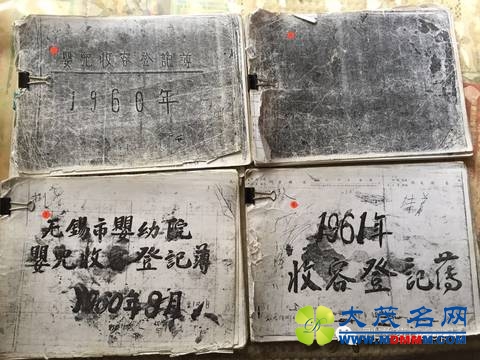 嬰兒收容登記簿
1960年
无锡市嬰幼院
嬰兒收容登記薄
1960年8月
1961年
收容登記薄
大茂名网